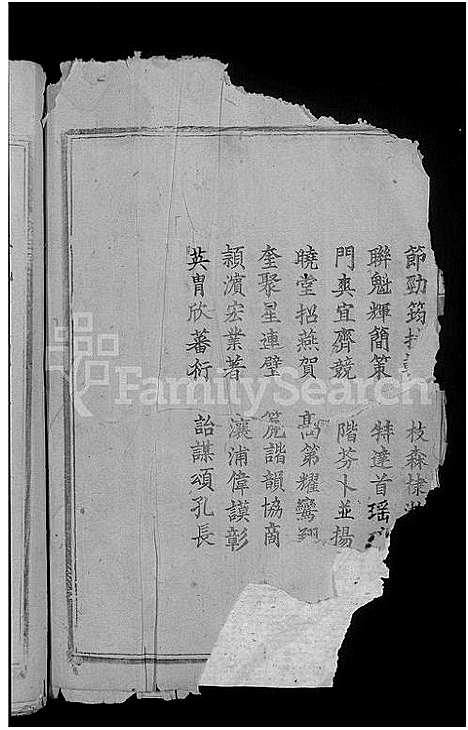 節勁筠 枝森棣
聯魁輝簡策 特達首瑶
門爽宜齊競 階芬卜並揚
曉堂招燕賀 高第耀鸞翔
奎聚星連壁 箎諧韻協商
潁濱宏業著 瀼浦偉謨彰
英胄欣蕃衍 詒謀頌孔長
FamilySearch